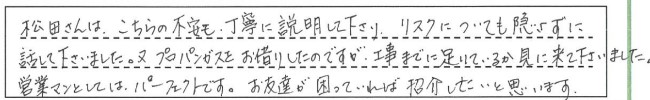 松田さんは、こちらの不安も、丁寧に説明して下さり、リスクについても隠さずに
話して下さいました。又プロパンガスをお借りしたのですが、工事までに足りているか見に来て下さいました。
営業マンとしては、パーフェクトです。お友達が困っていれば紹介したいと思います。